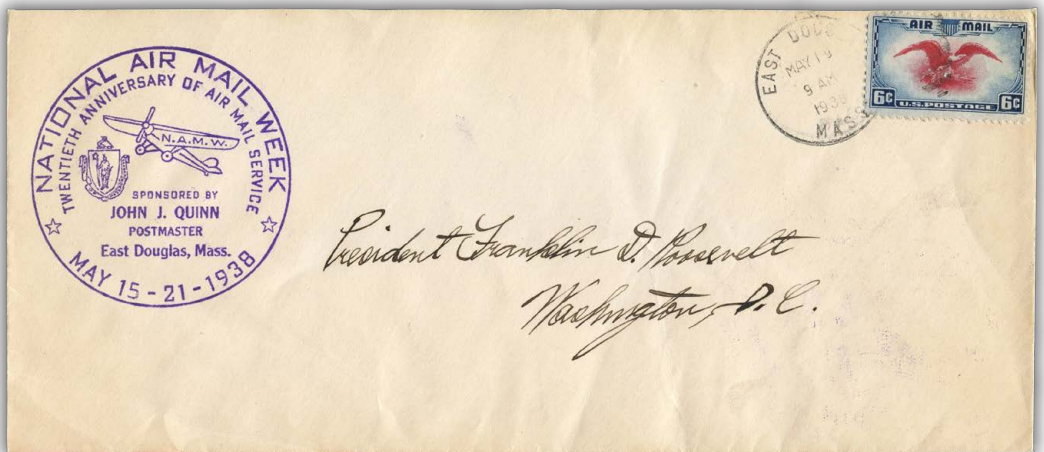 NATIONAL AIR MAIL WEEK
TWENTIETH ANNIVERSARY OF AIR MAIL SERVICE
N.A.M.W.
SPONSORED BY
JOHN J. QUINN
POSTMASTER
East Douglas, Mass.
MAY 15-21-1938
EAST DOUG
MAY 19
9 AM
1938
MASS
AIR MAIL
6¢ U.S. POSTAGE 6¢
President Franklin D. Roosevelt
Washington, D.C.